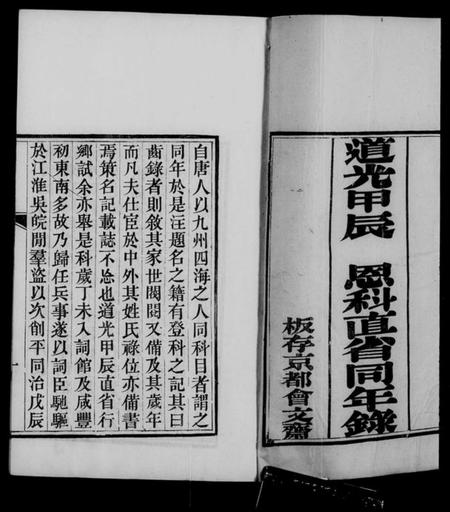 道光甲辰 恩科直省同年錄
板存京都會文齋
自唐人以九州四海之人同科目者謂之
同年於是注題名之籍有登科之記其曰
齒錄者則敘其家世閥閱又備及其歲年
而凡夫仕宦於中外其姓氏祿位亦備書
焉策名記載誌不忘也道光甲辰直省行
鄉試余亦舉是科歲丁未入詞館及咸豐
初東南多故乃歸任兵事遂以詞臣馳驅
於江淮吳皖閒羣盜以次削平同治戊辰